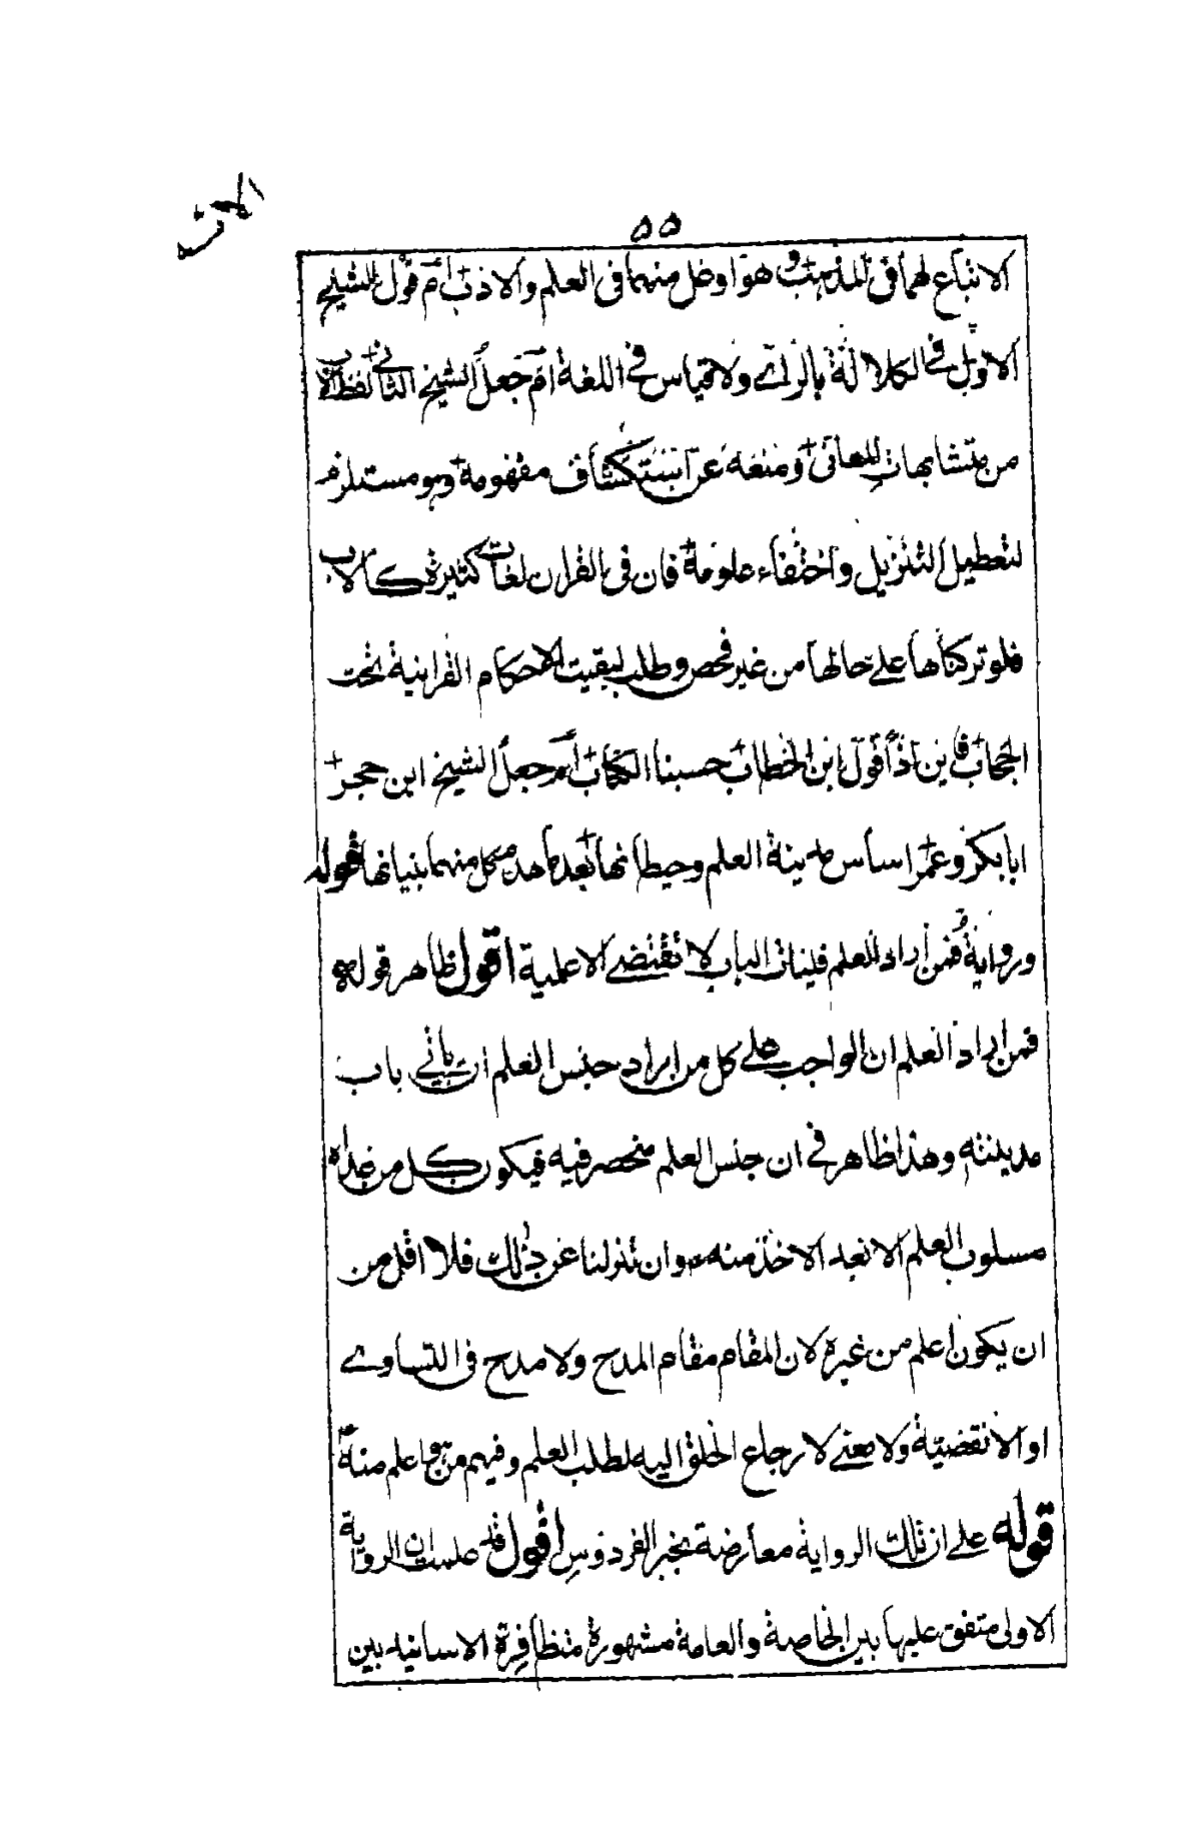 ٥٥
الاتباع لهما في المذهب وهو اوضل منهما في العلم والادب ام قول الشيخ
الاول في الكلالة بالراى ولا قياس في اللغة ام جعل الشيخ الثاني لفظ الاب
من متشابهات المعاني ومنعه عن استكشاف مفهومه وهو مستلزم
لتعطيل التنزيل واختفاء علومه فان في القران لغات كثيرة كالاب
فلو تركناها على حالها من غير فحص وطلب لبقيت الاحكام القرانية تحت
الحجاب فاين اذا قول ابن الخطاب حسبنا الكتاب ام جعل الشيخ ابن حجر
ابا بكر وعمر اساس مدينة العلم وحيطانها بعد ما هدم كل منهما بنيانها قوله
ورواية فمن اراد العلم فليات الباب لا تقتضى الاعلمية اقول ظاهر قوله
فمن اراد العلم ان الواجب على كل من اراد جنس العلم ان ياتى باب
مدينته وهذا ظاهر في ان جنس العلم منحصر فيه فيكون كل من عداه
مسلوب العلم الا بعد الاخذ منه وان تنزلنا عن ذلك فلا اقل من
ان يكون اعلم من غيره لان المقام مقام المدح ولا مدح في التساوى
او الانقضية ولا معنى لارجاع الخلق اليه لطلب العلم وفيهم من هو اعلم منه
قوله على ان تلك الرواية معارضة بخبر الفردوس اقول قد علمت ان الرواية
الاولى متفق عليها بين الخاصة والعامة مشهورة متظافرة الاسانيد بين